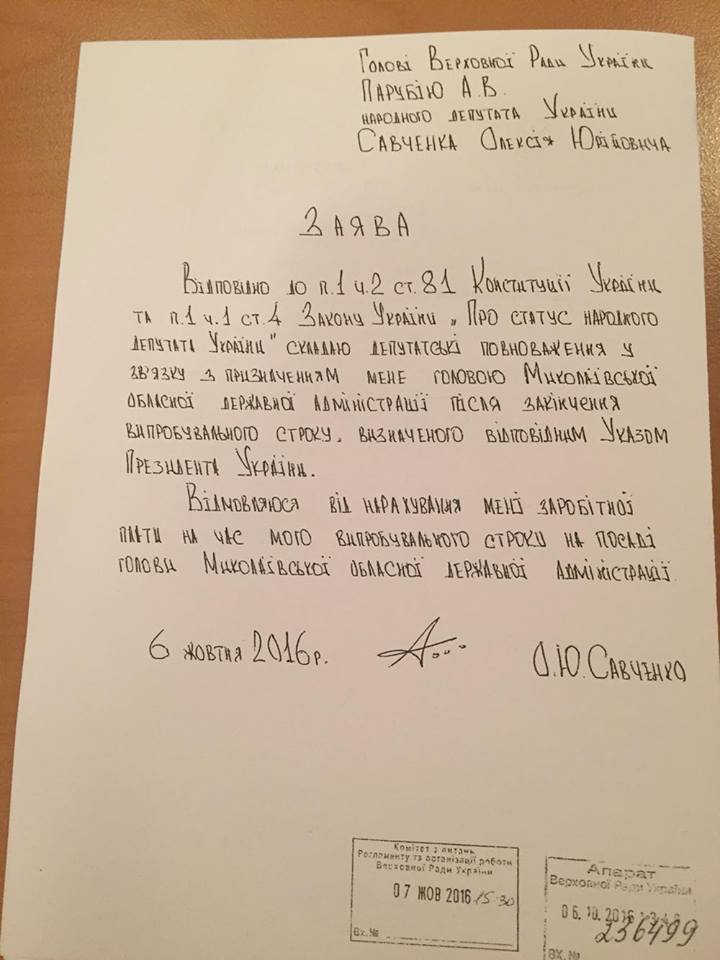 Голові Верховної Ради України
Парубію А.В.
народного депутата України
Савченка Олексія Юрійовича
Заява
Відповідно до п.1 ч.2 ст.81 Конституції України
та п.1 ч.1 ст.4 Закону України „Про статус народного
депутата України" складаю депутатські повноваження у
зв'язку з призначенням мене головою Миколаївської
обласної державної адміністрації після закінчення
випробувального строку, визначеного відповідним Указом
Президента України.
Відмовляюся від нарахування мені заробітної
плати на час мого випробувального строку на посаді
голови Миколаївської обласної державної адміністрації
6 жовтня 2016р.
О.Ю. Савченко
Комітет з питань
Регламенту та організації роботи
Верховної Ради України
07 ЖОВ 2016 15:30
Вх.№
Апарат
Верховної Ради України
06.10.2016
236499
ВХ.№